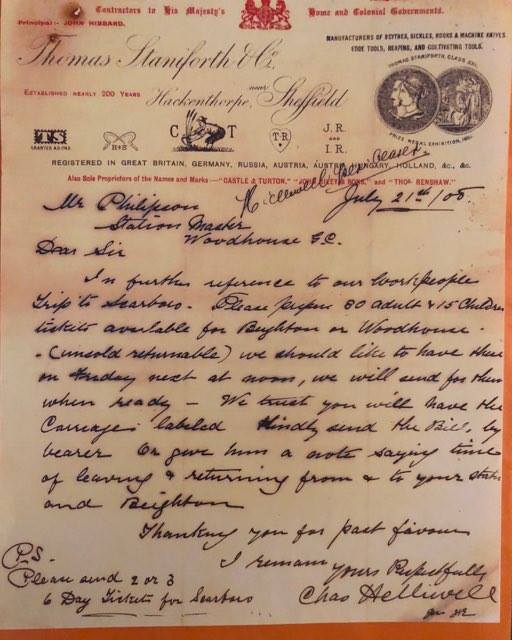 Contractors to His Majesty's Home and Colonial Governments.
Principal:- JOHN HIBBARD.
MANUFACTURERS OF SCYTHES, SICKLES, HOOKS & MACHINE KNIVES
EDGE TOOLS, REAPING, AND CULTIVATING TOOLS.
Thomas Staniforth & Co.
THOMAS STANIFORTH, CLASS XXI.
ESTABLISHED NEARLY 200 YEARS
Hackenthorpe, near Sheffield
PRIZE MEDAL EXHIBITION,
TS
C T
T.R
J.R.
AND
I.R.
REGISTERED IN GREAT BRITAIN, GERMANY, RUSSIA, AUSTRIA, HUNGARY, HOLLAND, &c., &c.
Also Sole Proprietors of the Names and Marks—"CASTLE & TURTON," and "THOS RENSHAW."
July 21st/05
Mr Philipson
Station Master
Woodhouse G.C.
Dear Sir
In further reference to our Workpeople
Trip to Scarboro. Please 80 adult & 15 Children
tickets available for Beighton or Woodhouse
- (unsold returnable) we should like to have these
on Friday next at noon, we will send for them
when ready — We trust you will have the
Carriages labeled Kindly send the Bill, by
bearer Or give him a note saying time
of leaving & returning from & to your statn
and Beighton
Thanking you for past favours
I remain
yours Respectfully
Chas Helliwell
P.S.
Please send 2 or 3
6 Day Tickets for Scarboro